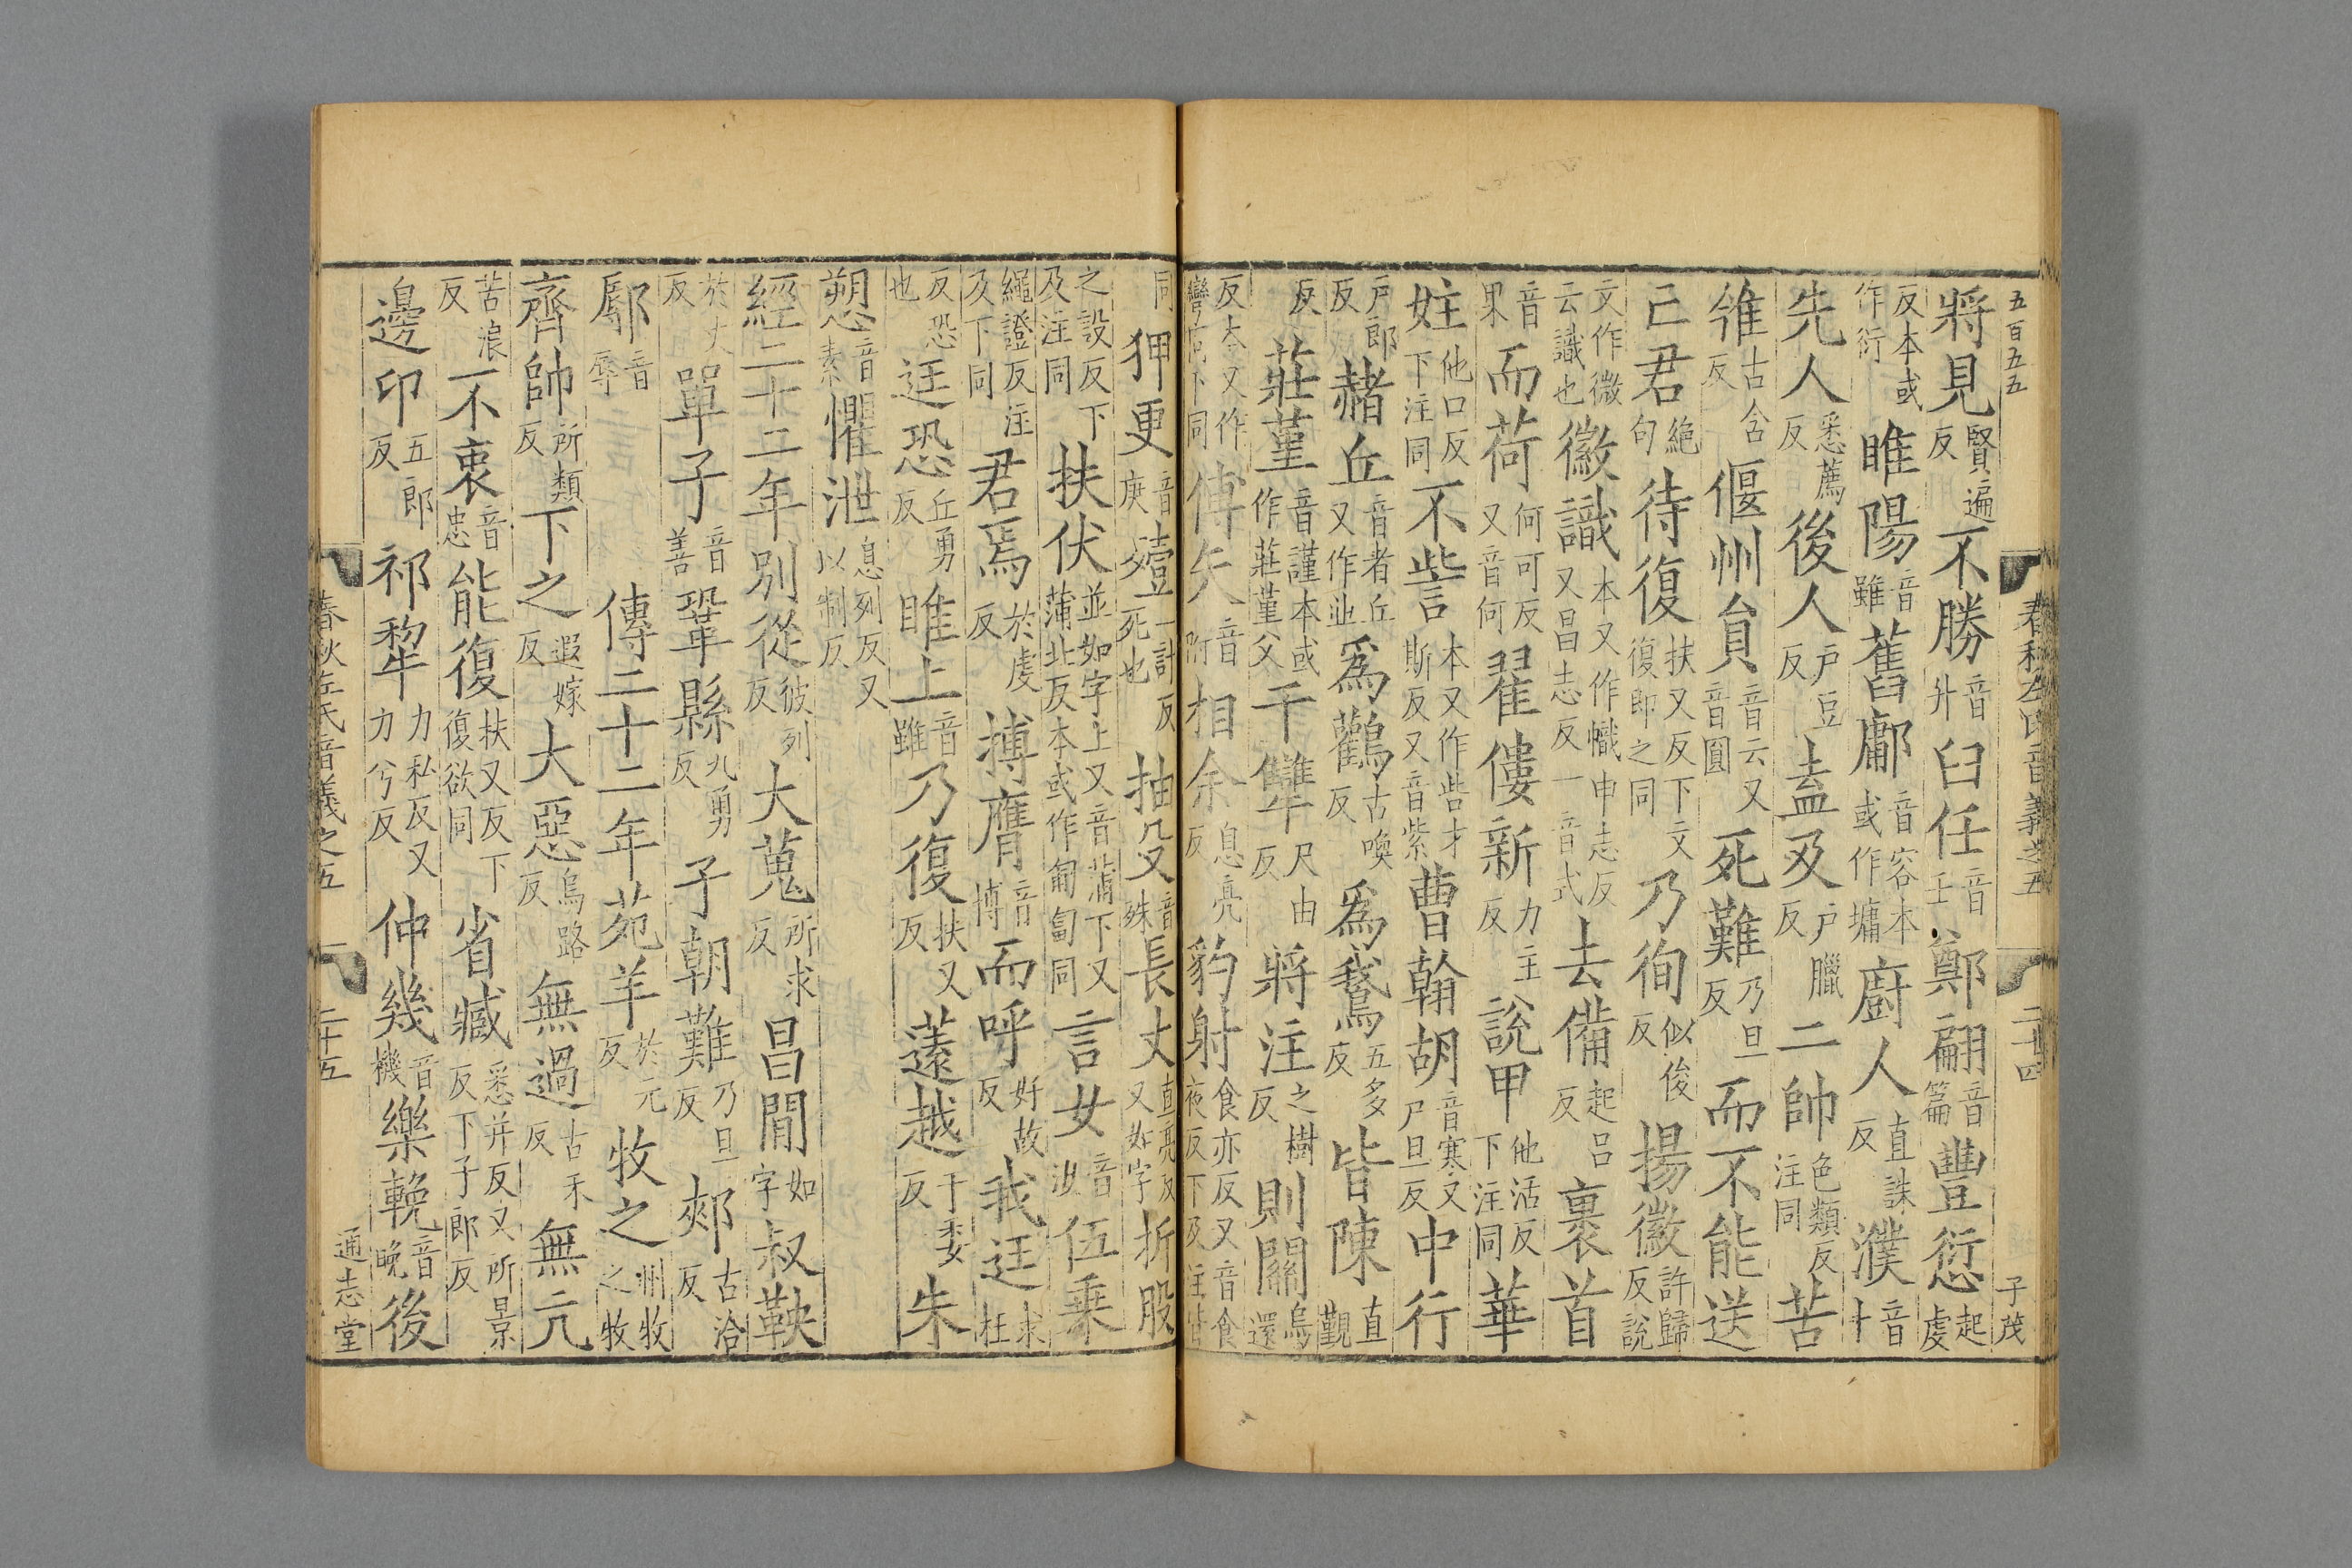 五百五五 春秋左氏音義之五 二十四 子茂
將見賢遍反不勝音升臼任音壬鄭翩音篇豐愆起虔
反本或作衍睢陽音雖舊鄘音容本或作墉廚人直誅反濮音卜
先人悉薦反後人戶豆反盍及戶臘反二帥色類反注同苦
雂古含反偃州員音云又音圓死難乃旦反而不能送
亡君絕句待復扶又反下文復即之同乃徇似俊反揚徽許歸反說
文作微云識也徽識本又作幟申志反又昌志反一音式去備起呂反裹首
音果而荷何可反又音何翟僂新力主反說甲他活反下注同華
妵他口反下注同不訾本又作呰才斯反又音紫曹翰胡音寒又戶旦反中行
戶郎反赭丘音者丘又作㐀爲鸛古喚反爲鵝五多反皆陳直覲
反莊堇音謹本或作莊堇父干犨尺由反將注之樹反則關烏還
反本又作彎同下同傅矢音附相余息亮反豹射食亦反又音食夜反下及注皆
同狎更音庚殪一計反死也抽殳音殊長丈直亮反又如字折股
之設反下及注同扶伏並如字上又音蒲下又蒲北反本或作匍匐同言女音汝伍乘
繩證反注及下同君焉於虔反搏膺音博而呼好故反我迋求枉
反恐也迋恐丘勇反睢上音雖乃復扶又反薳越于委反朱
愬音素懼泄息列反又以制反
經二十二年別從彼列反大蒐所求反昌間如字叔鞅
於丈反單子音善鞏縣九勇反子朝難乃旦反郟古洽反
鄏音辱傳二十二年苑羊於元反牧之州牧之牧
齊帥所類反下之遐嫁反大惡烏路反無過古禾反無亢
苦浪反不衷音忠能復扶又反下復欲同省臧悉井反又所景反下子郎反
邊卬五郎反祁犂力私反又力兮反仲幾音機樂輓音晚後
春秋左氏音義之五 二十五 通志堂